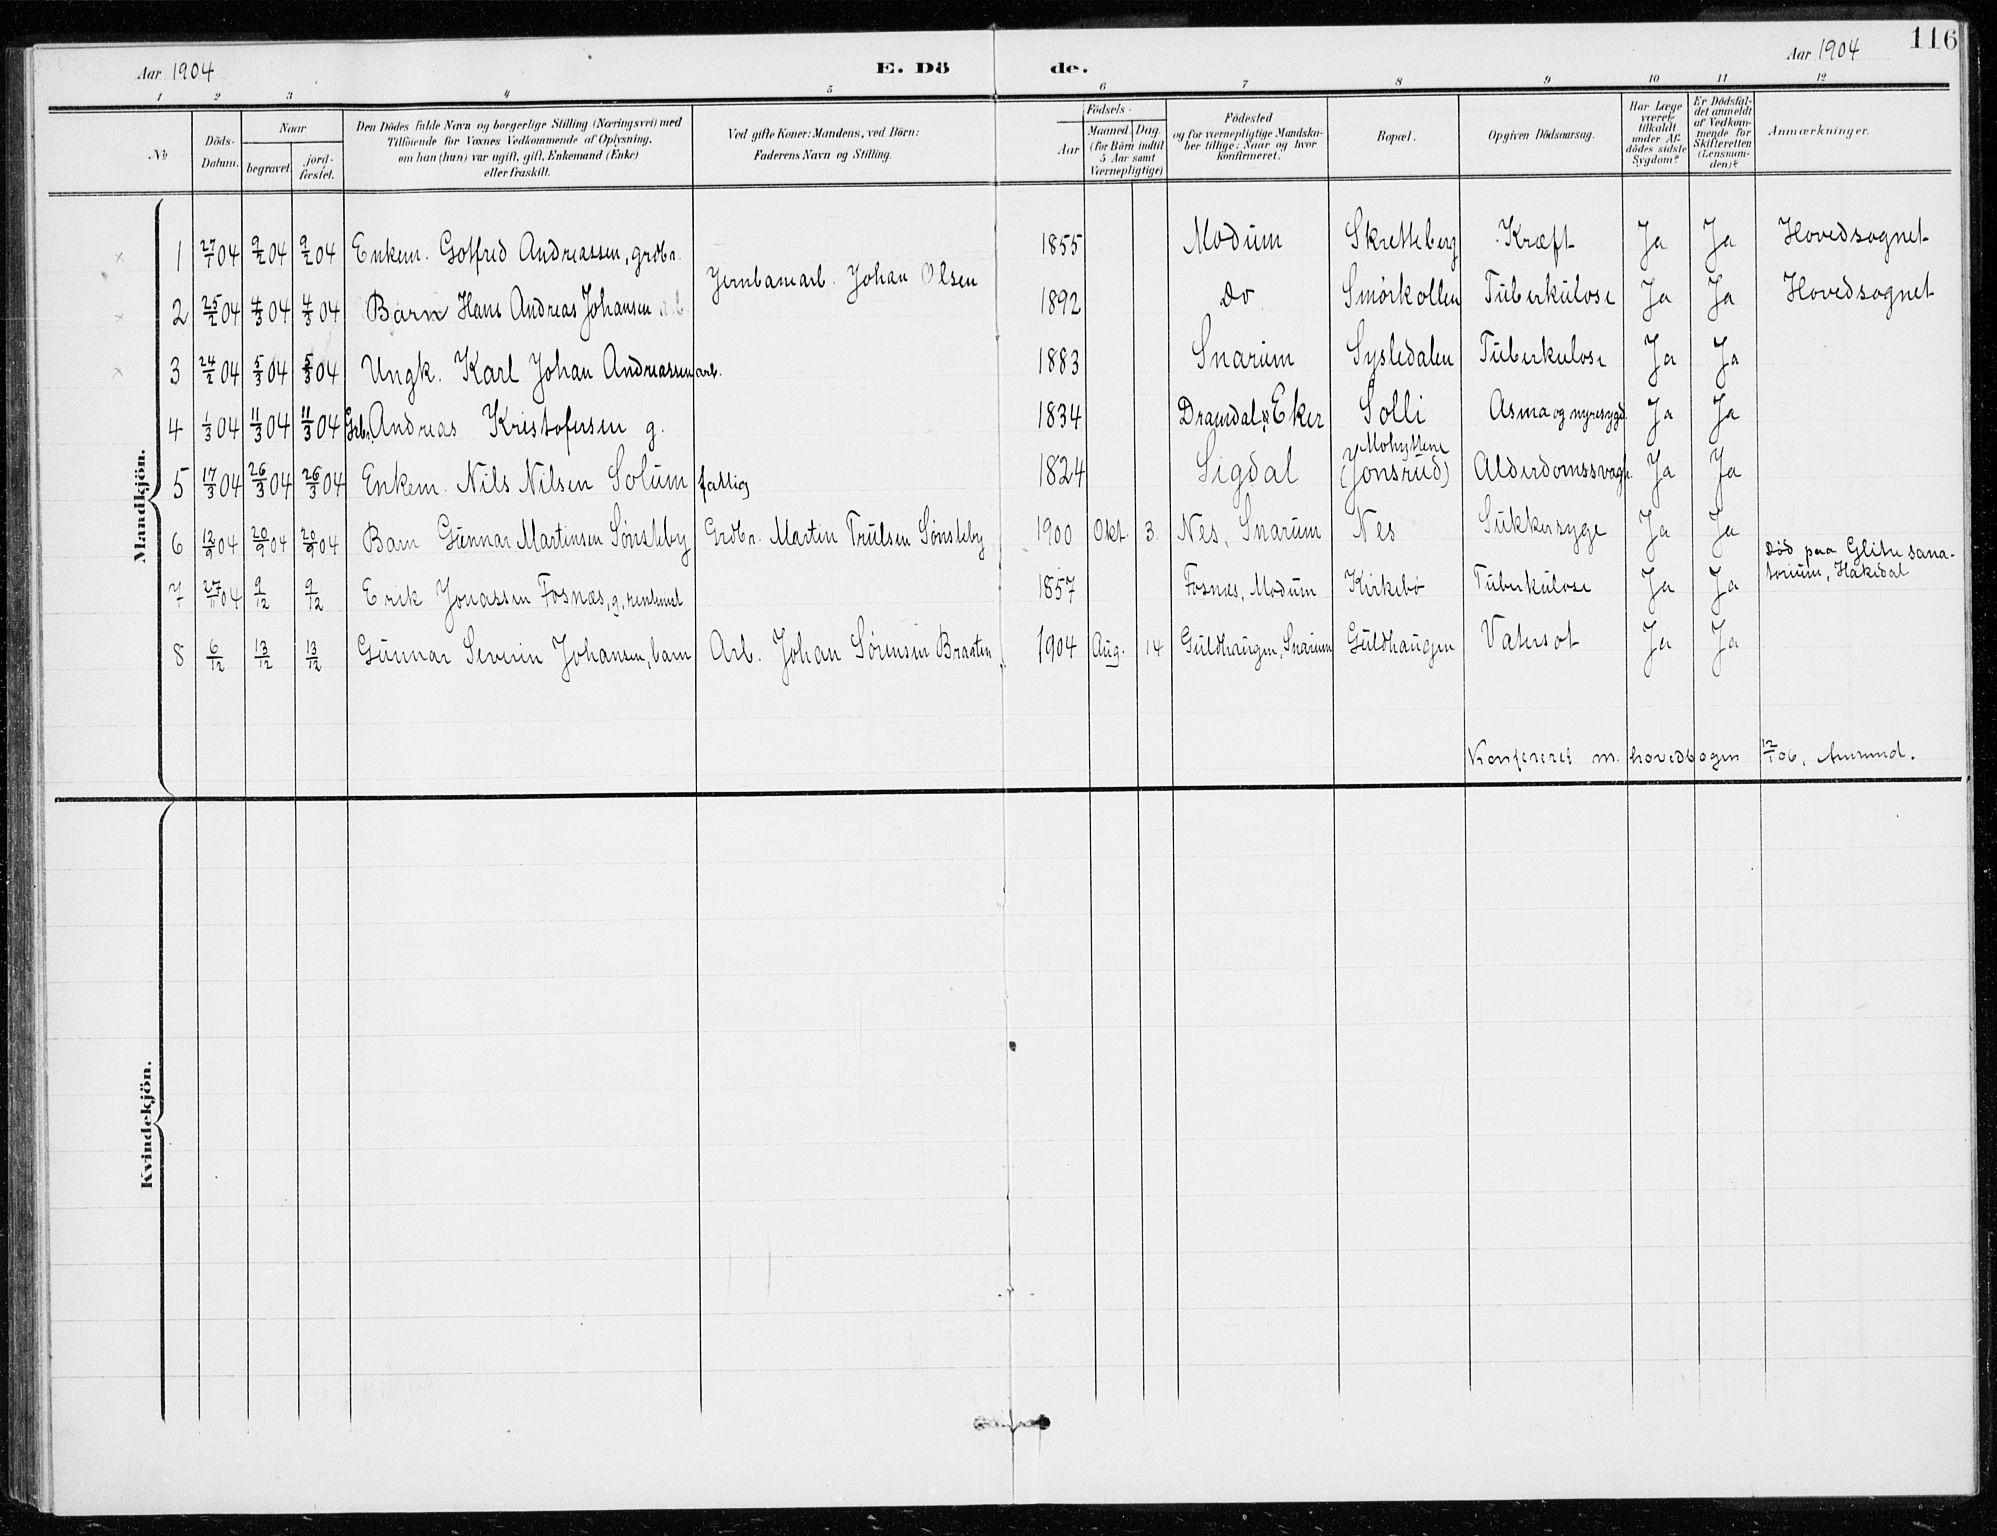 116
Aar 1904 E. Dö de. Aar 1904
1 2 3 4 5 6 7 8 9 10 11 12
No.
Döds-Datum.
Naar
begravet.
jord-fæstet.
Den Dödes fulde Navn og borgerlige Stilling (Næringsvei) med
Tilföiende for Voxnes Vedkommende af Oplysning,
om han (hun) var ugift, gift, Enkemand (Enke)
eller fraskilt.
Ved gifte Koner: Mandens, ved Börn:
Faderens Navn og Stilling.
Födsels-
Aar
Maaned. Dag.
(for Börn indtil
5 Aar samt
Værnepligtige)
Födested
og for værnepligtige Mandska-
ber tillige: Naar og hvor
konfirmeret.
Bopæl.
Opgiven Dödsaarsag.
Har Læge
været
tilkaldt
under Af-
dödes sidste
Sygdom?
Er Dödsfal-
det anmeldt
af Vedkom-
mende for
Skifteretten
(Lensman-
den)?
Anmærkninger.
Mandkjön.
1 27/1 04 9/2 04 9/2 04 Enkem. Gotfred Andreassen, grdbr. 1855 Modum Skretteberg Kræft Ja Ja Hovedsognet
2 25/2 04 4/3 04 4/3 04 Barn Hans Andreas Johansen Jernbanearb. Johan Olsen 1892 do Smørkollen Tuberkulose Ja Ja Hovedsognet
3 24/2 04 5/3 04 5/3 04 Ungk. Karl Johan Andreassen arb. 1883 Snarum Sysledalen Tuberkulose Ja Ja
4 1/3 04 11/3 04 11/3 04 Gbr. Andreas Kristofersen g. 1834 Eker Solli Asma og nyresygd. Ja Ja
5 17/3 04 26/3 04 26/3 04 Enkem. Nils Nilsen Solum fattig 1824 Sigdal Mohyttene (Jonsrud) Alderdomssvagh. Ja Ja
6 12/9 04 20/9 04 20/9 04 Barn Gunnar Martinsen Sønsteby Grdbr. Martin Trulsen Sønsteby 1900 Okt. 3. Nes, Snarum Nes Sukkersyge Ja Ja
7 27/11 04 9/12 9/12 Erik Jonassen Fosnæs, g. 1857 Fosnæs, Modum Kirkebø Tuberkulose Ja Ja Død paa Glitre sana-
torium, Hakedal
8 6/12 13/12 13/12 Gunnar Severin Johansen, barn Arb. Johan Sørensen Braaten 1904 Aug. 14 Guldhaugen, Snarum Guldhaugen Vatersot Ja Ja
Konfereret m. hovedbogen 12/1 06.
Kvindekjön.